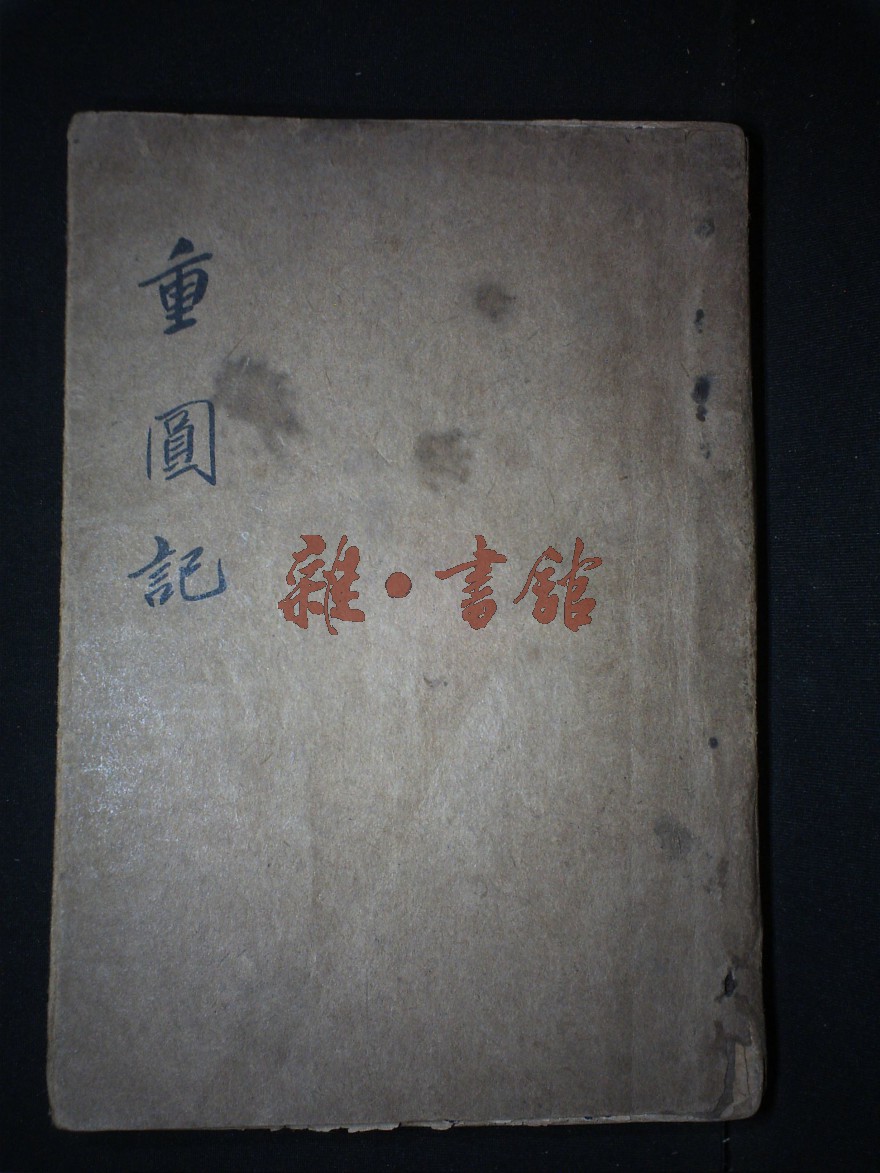 重圓記
雜·書館